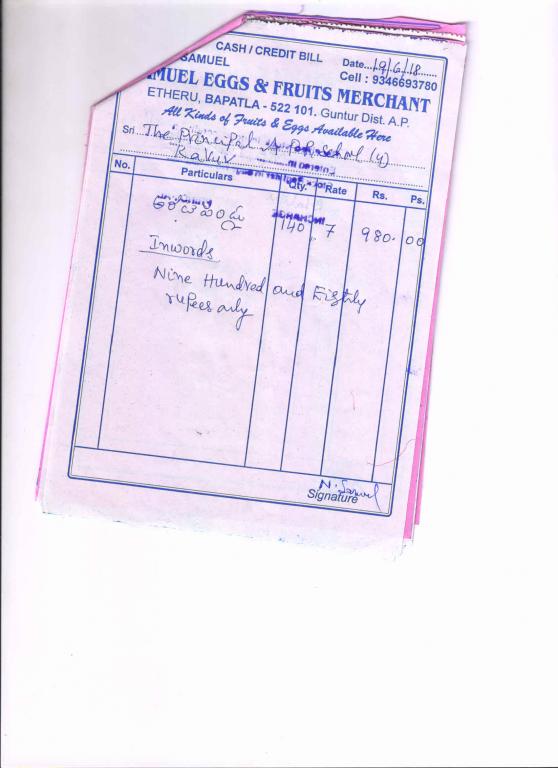 CASH / CREDIT BILL
Date...19/6/18......
SAMUEL
Cell : 9346693780
MUEL EGGS & FRUITS MERCHANT
ETHERU, BAPATLA - 522 101. Guntur Dist. A.P.
All Kinds of Fruits & Eggs Available Here
Sri...The Principal A P
No. Particulars Qty. Rate Rs. Ps.
140 7 980. 00
Inwords
Nine Hundred and Eighty
rupees only
N. Samuel
Signature